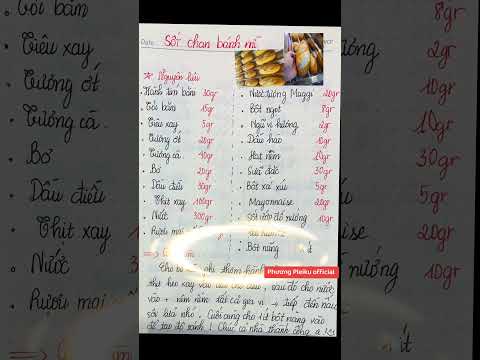 Date.
Sốt chan bánh mì
★ Nguyên liệu
Hành tím băm 30gr
Tỏi băm 15gr
Tiêu xay 5gr
Tương ớt 20gr
Tương cà 40gr
Bơ 20gr
Dầu điều 30gr
Thịt xay 100gr
Nước 300gr
Rượu mai
Nước tương Maggi 20gr
Bột ngọt 8gr
Ngũ vị hương 2gr
Dầu hào 10gr
Hạt nêm 10gr
Sữa đặc 30gr
Bột xá xíu 5gr
Mayonnaise 20gr
Sốt ướp đồ nướng 10gr
Bột năng
Phương Pleiku official
Cho bơ phi thơm hành
thịt heo xay vào xào cho, sau đó cho nước
vào + nêm nếm tất cả gia vị → tiếp đến nấu
sôi lửa nhỏ. Cuối cùng cho 1 ít bột năng vào
để tạo độ sánh! Chúc cả nhà thành công ạ
Tỏi băm
Tiêu xay
Tương ớt
Tương cà
Bơ
Dầu điều
Thịt xay
Nước
Rượu mai
8gr
2gr
10gr
10gr
30gr
5gr
20gr
nướng 10gr